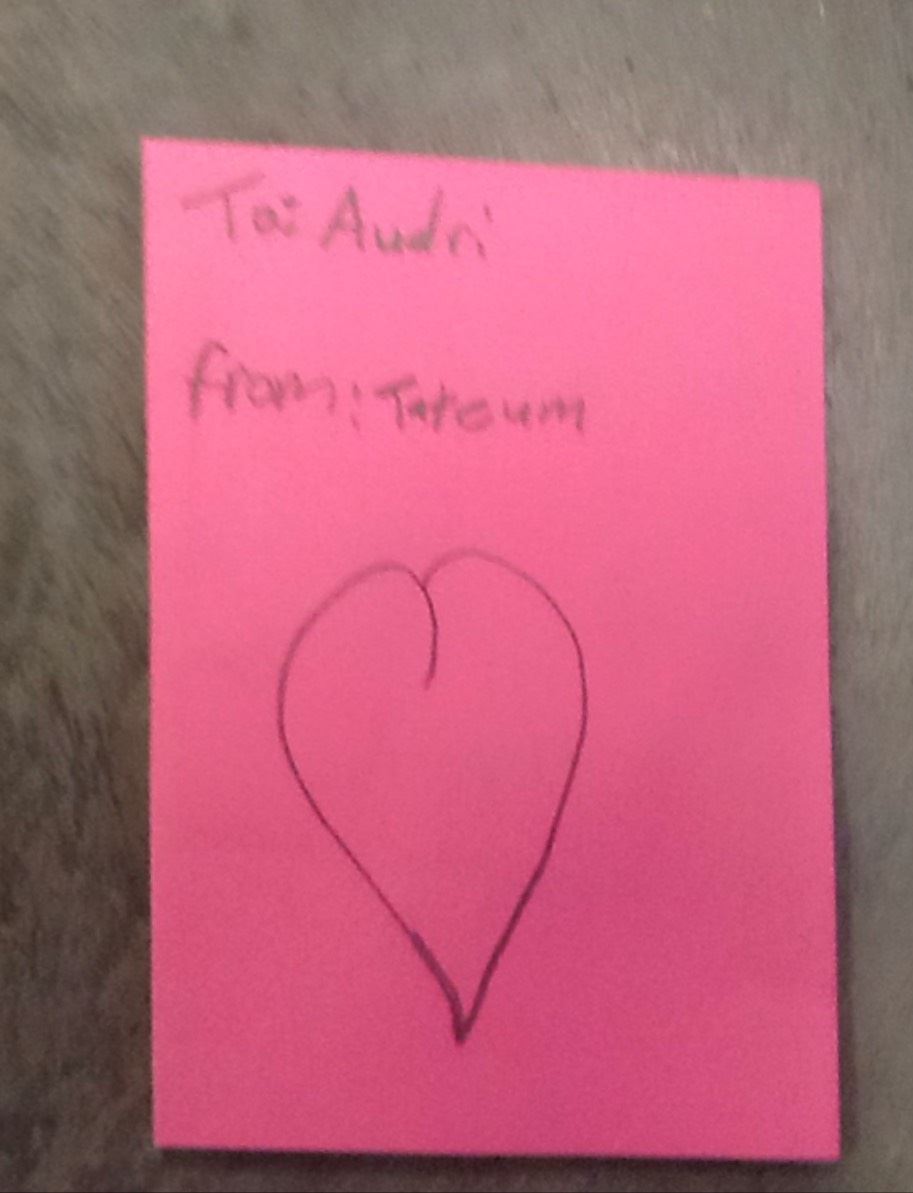 To: Audri
from: Tateum